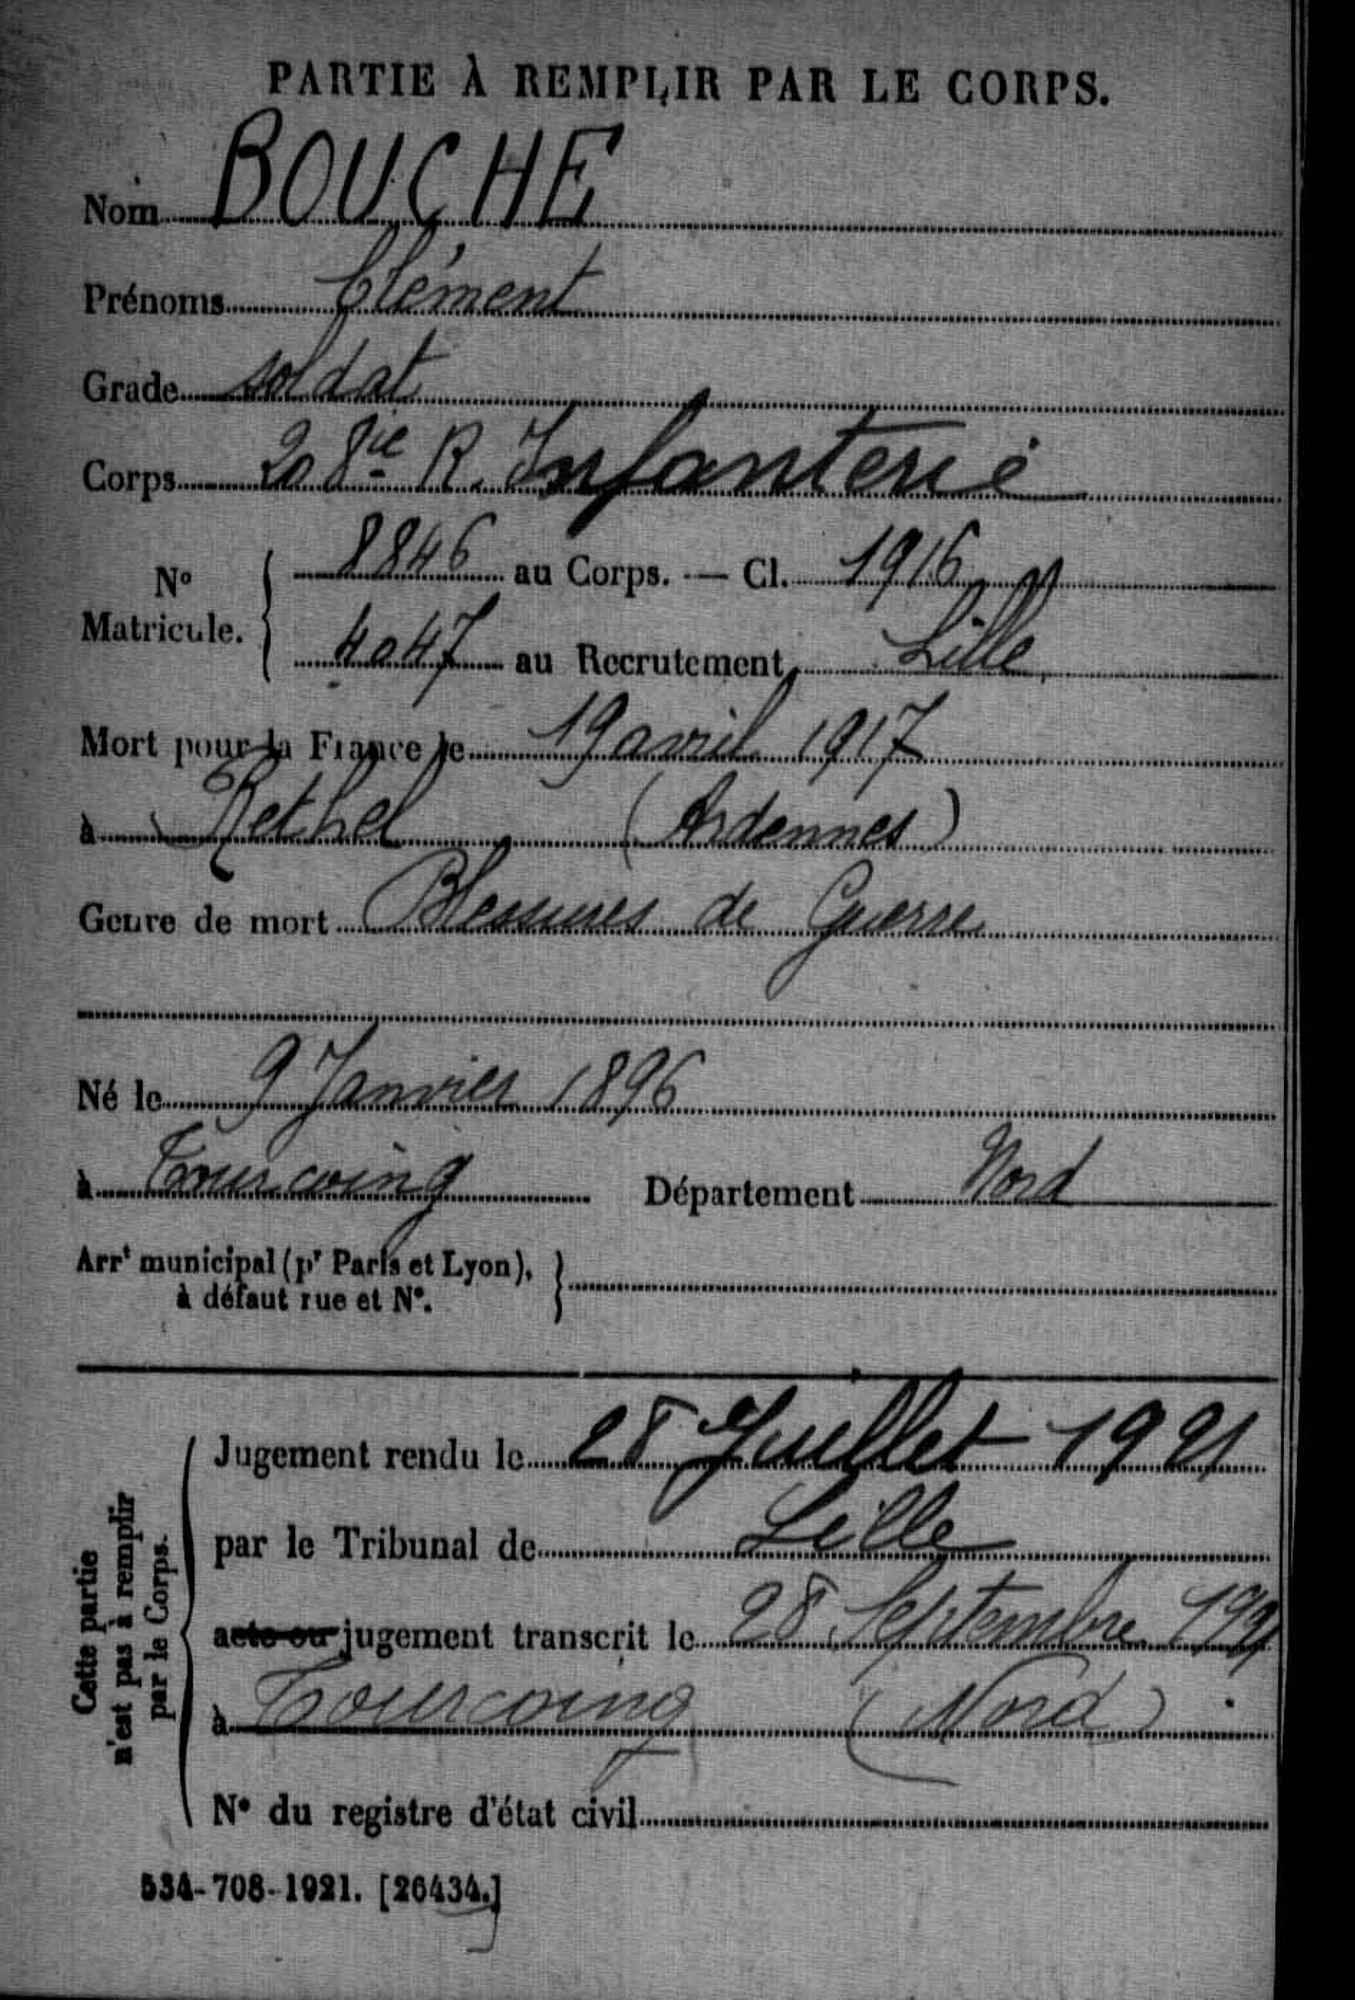 PARTIE À REMPLIR PAR LE CORPS.
Nom BOUCHE
Prénoms Clément
Grade soldat
Corps 208ie R. Infanterie
No Matricule. 8846 au Corps. — Cl. 1916
4047 au Recrutement Lille
Mort pour la France le 19 avril 1917
à Rethel (Ardennes)
Genre de mort Blessures de Guerre
Né le 9 Janvier 1896
à Tourcoing Département Nord
Arrt municipal (pr Paris et Lyon),
à défaut rue et No.
Cette partie
n'est pas à remplir
par le Corps.
Jugement rendu le 28 Juillet 1921
par le Tribunal de Lille
acte ou jugement transcrit le 28 Septembre 1921
à Tourcoing (Nord)
No du registre d'état civil
534-708-1921. [26434.]